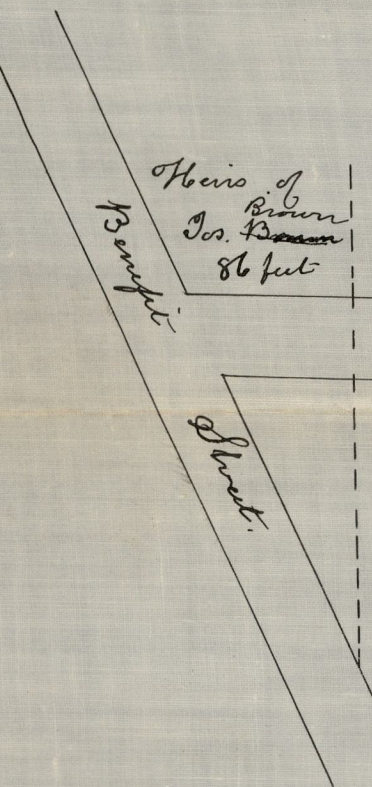 Heirs of
Brown
Jos.
86 feet
Benefit
Street.